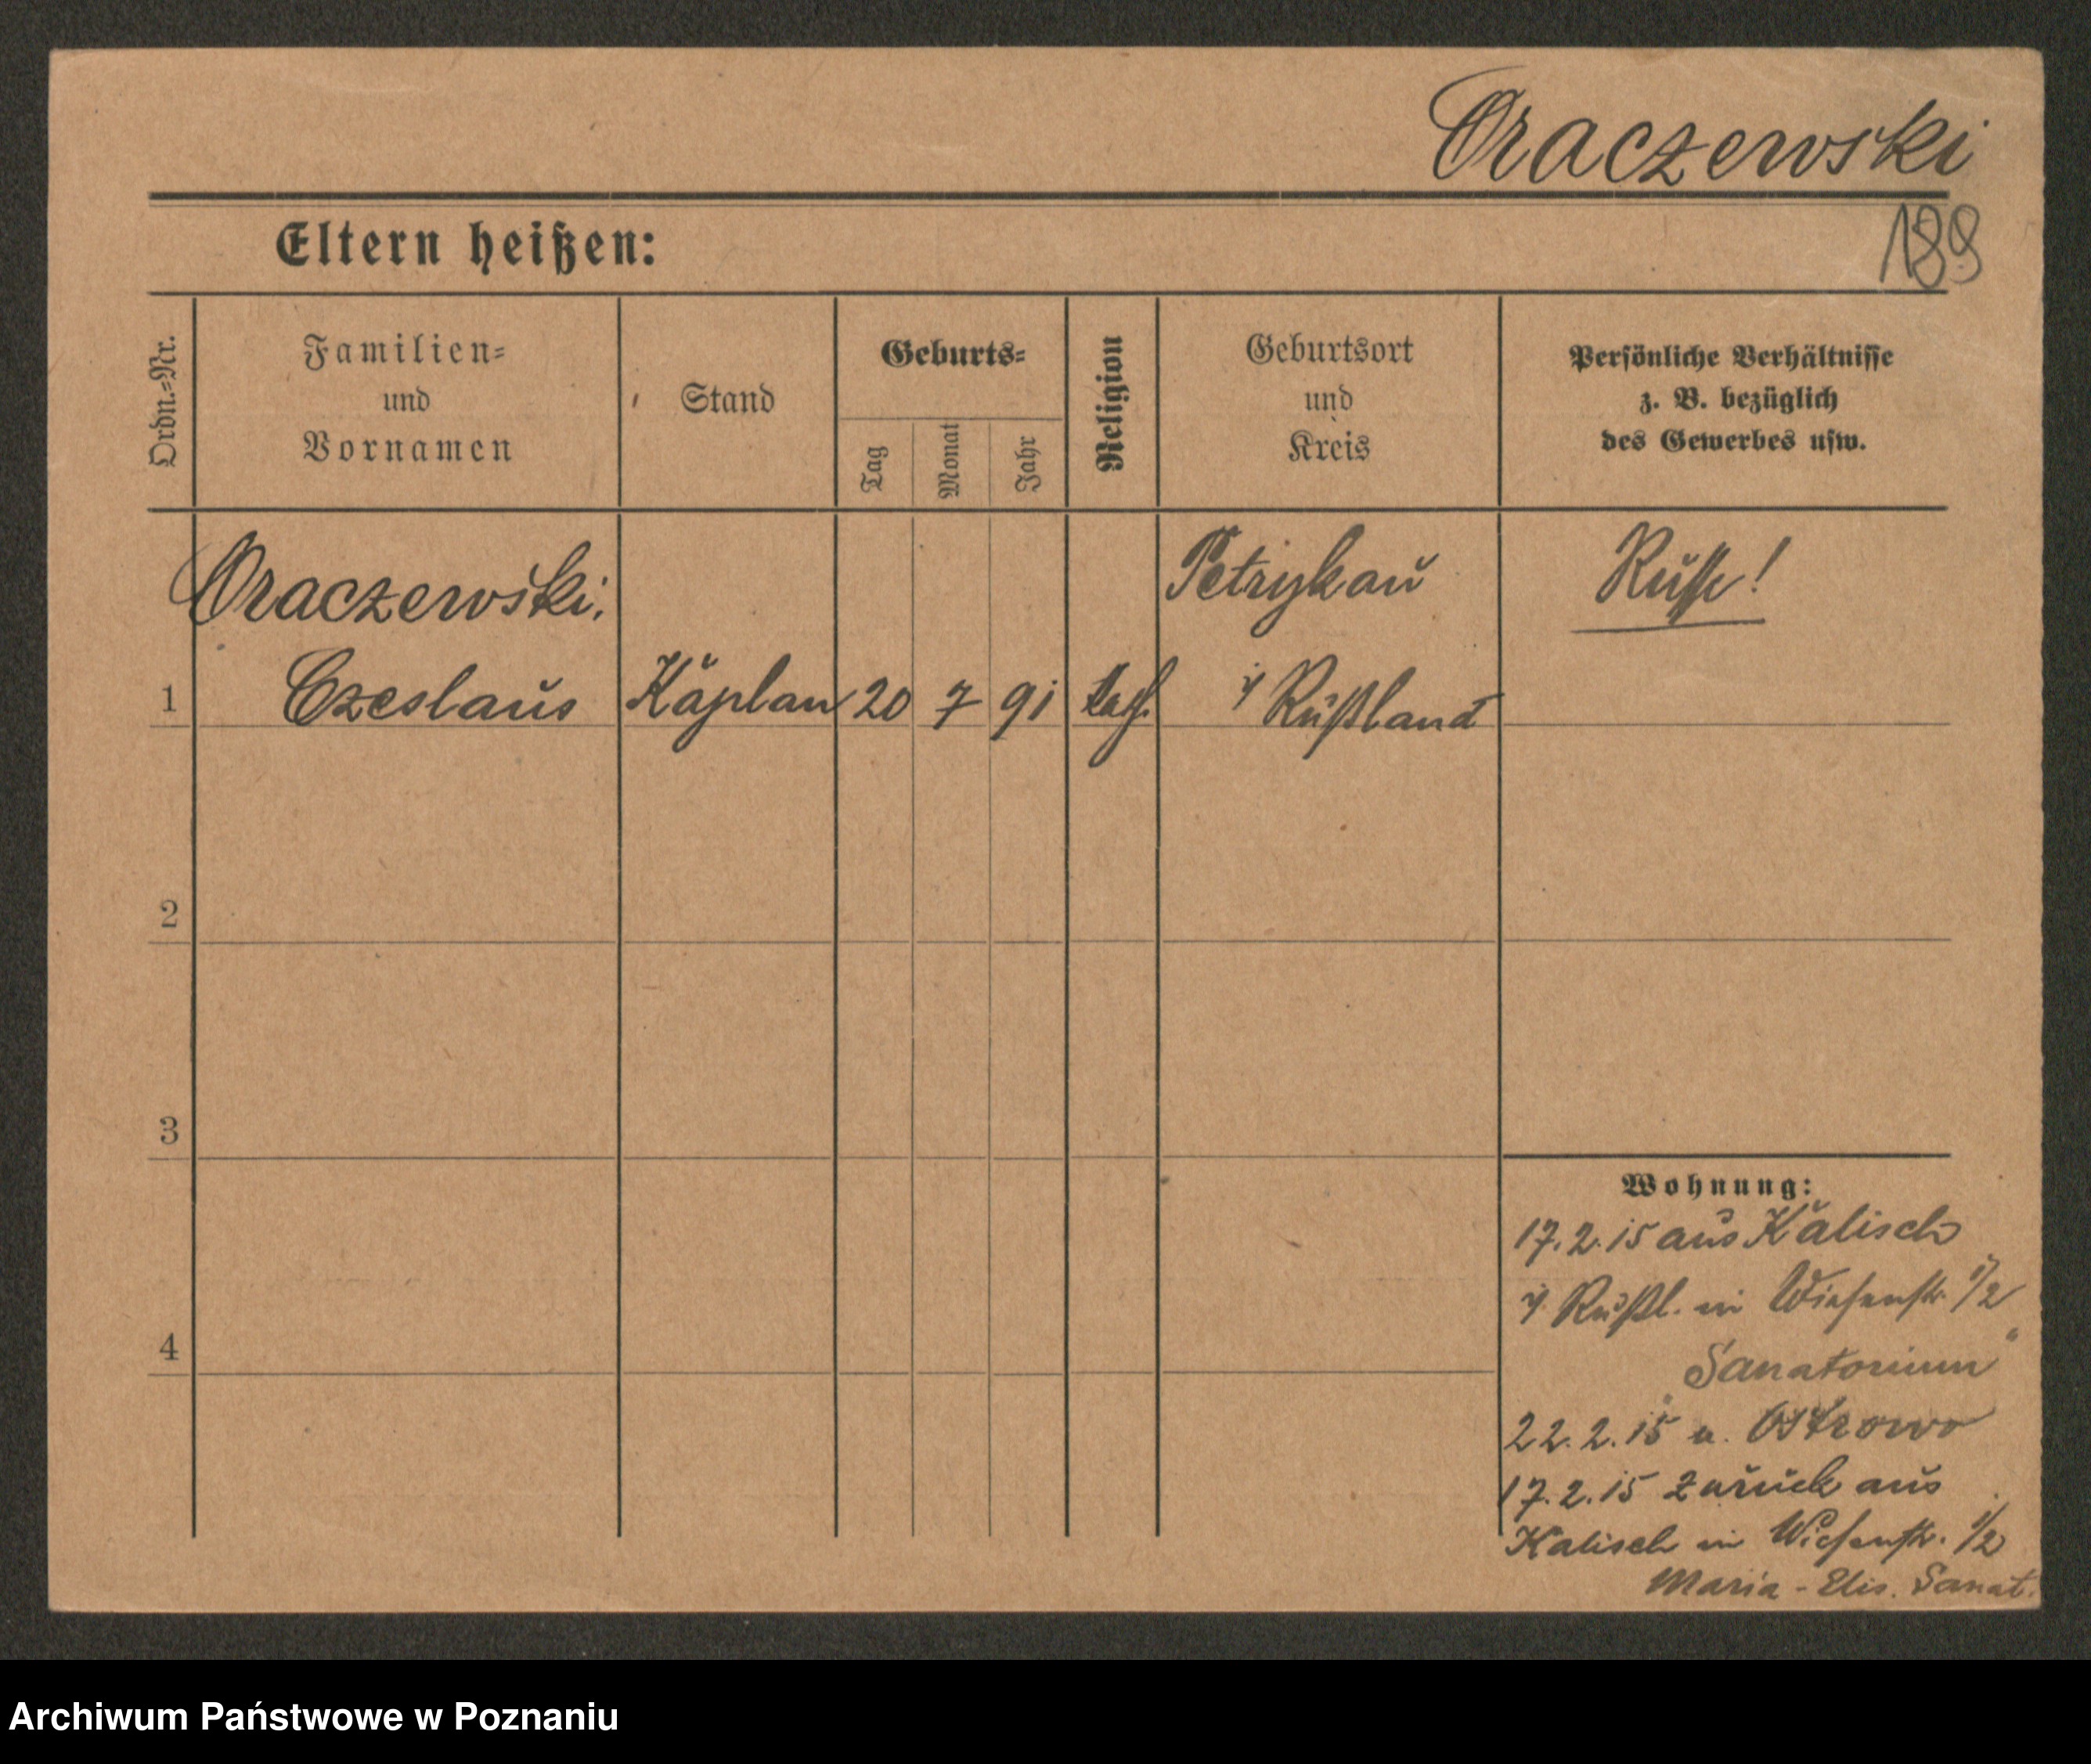 Oraczewski
189
Eltern heißen:
Ordn.=Nr.
Familien=
und
Vornamen
Stand
Geburts=
Tag
Monat
Jahr
Religion
Geburtsort
und
Kreis
Persönliche Verhältnisse
z. B. bezüglich
des Gewerbes usw.
Oraczewski, Petrykau Russe!
1 Czeslaus Kaplan 20 7 91 kath. i/ Rußland
2
3
4
Wohnung:
17.2.15 aus Kalisch
i/ Rußl. in Wiesenstr. 1/2
"Sanatorium"
22.2.15 n. Ostrowo
17.2.15 zurück aus
Kalisch in Wiesenstr. 1/2
Maria-Elis. Sanat.
Archiwum Państwowe w Poznaniu